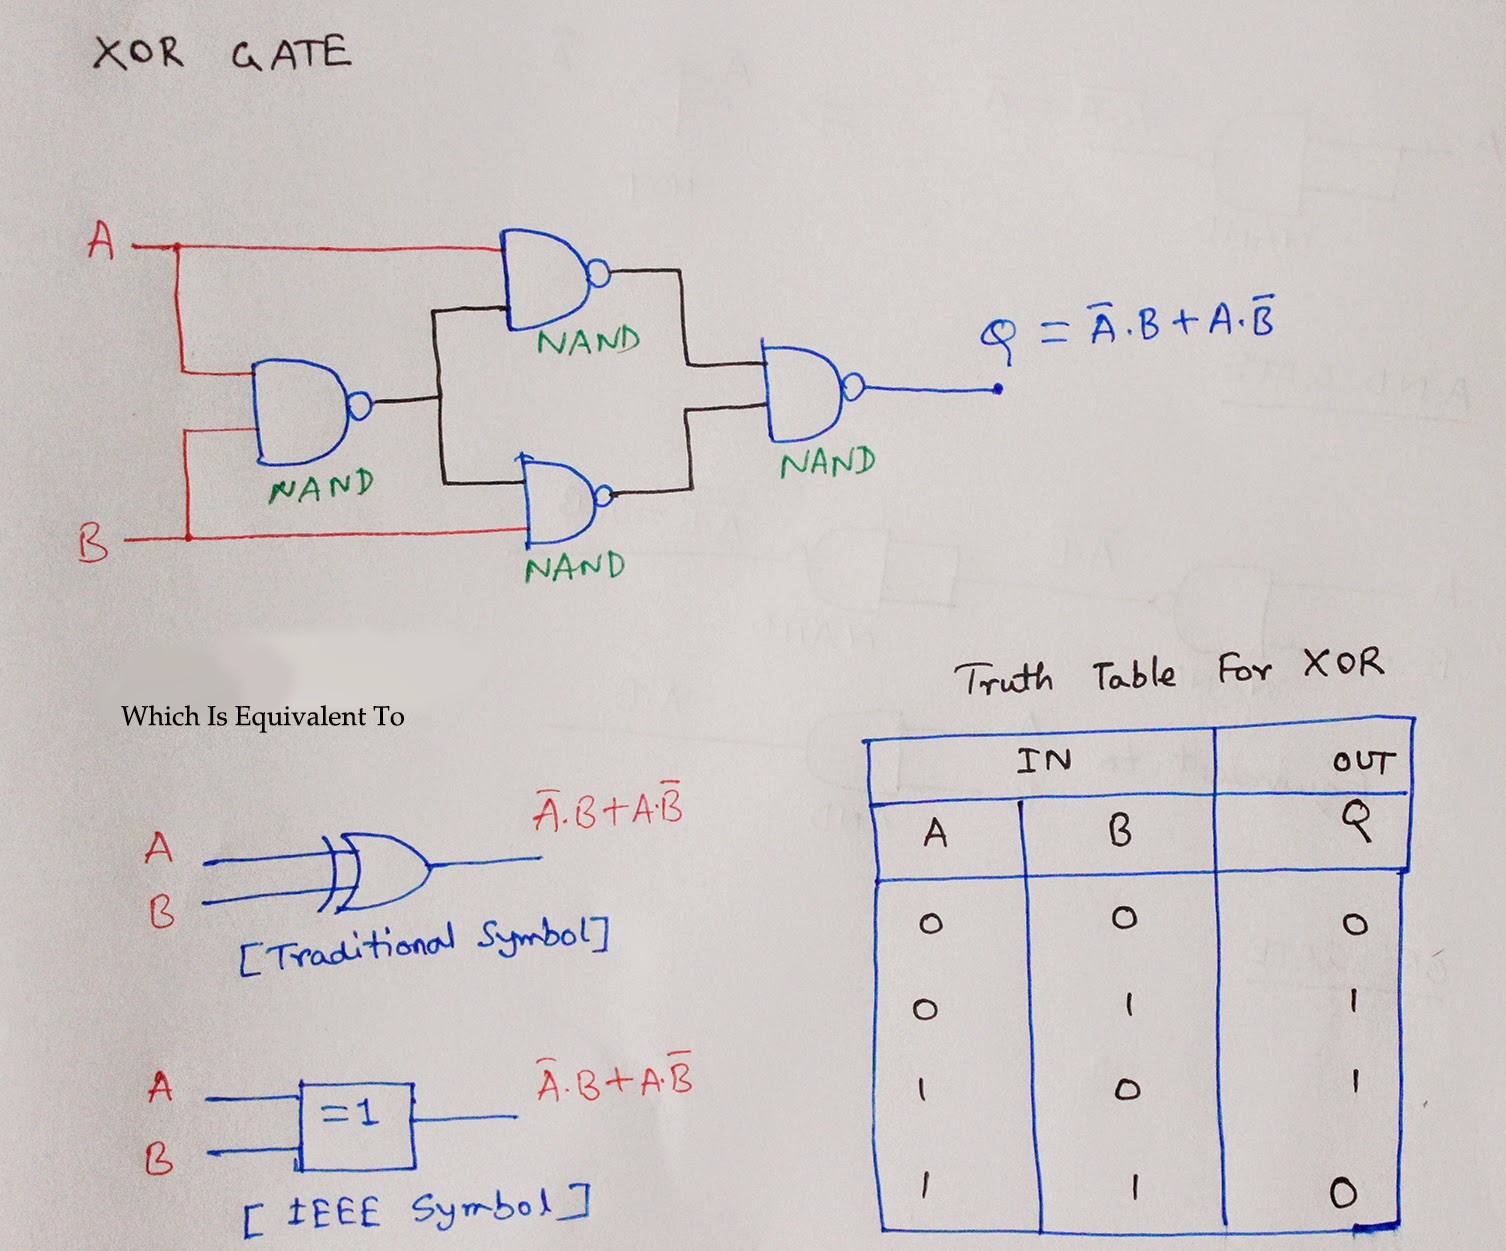 XOR GATE
A
Q = A̅.B + A.B̅
NAND
NAND
NAND
NAND
B
NAND
Which Is Equivalent To
A
B
A̅.B + A.B̅
[Traditional Symbol]
A
B
=1
A̅.B + A.B̅
[IEEE Symbol]
Truth Table For XOR
IN OUT
A B Q
0 0 0
0 1 1
1 0 1
1 1 0